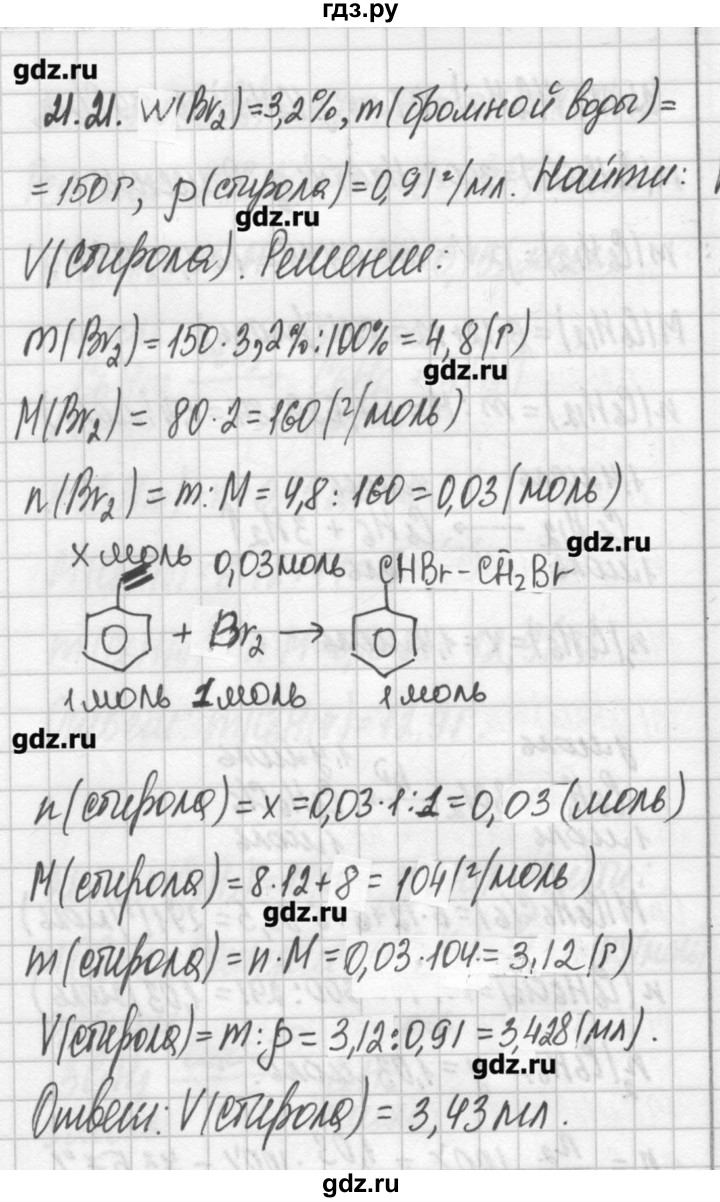 гдз.ру
gdz.ru
21.21. W(Br₂)=3,2%, m(бромной воды)=
=150г, ρ(стирола)=0,91г/мл. Найти:
gdz.ru
V(стирола). Решение:
m(Br₂)=150·3,2%:100%=4,8(г)
gdz.ru
M(Br₂)= 80·2=160(г/моль)
n(Br₂)=m:M=4,8:160=0,03(моль)
gdz.ru
x моль 0,03моль CHBr-CH₂Br
+ Br₂ →
1моль 1моль 1моль
gdz.ru
n(стирола)=x=0,03·1:1=0,03(моль)
M(стирола)=8·12+8=104(г/моль)
gdz.ru
m(стирола)=n·M=0,03·104=3,12(г)
V(стирола)=m:ρ=3,12:0,91=3,428(мл).
gdz.ru
Ответ: V(стирола)=3,43мл.
gdz.ru